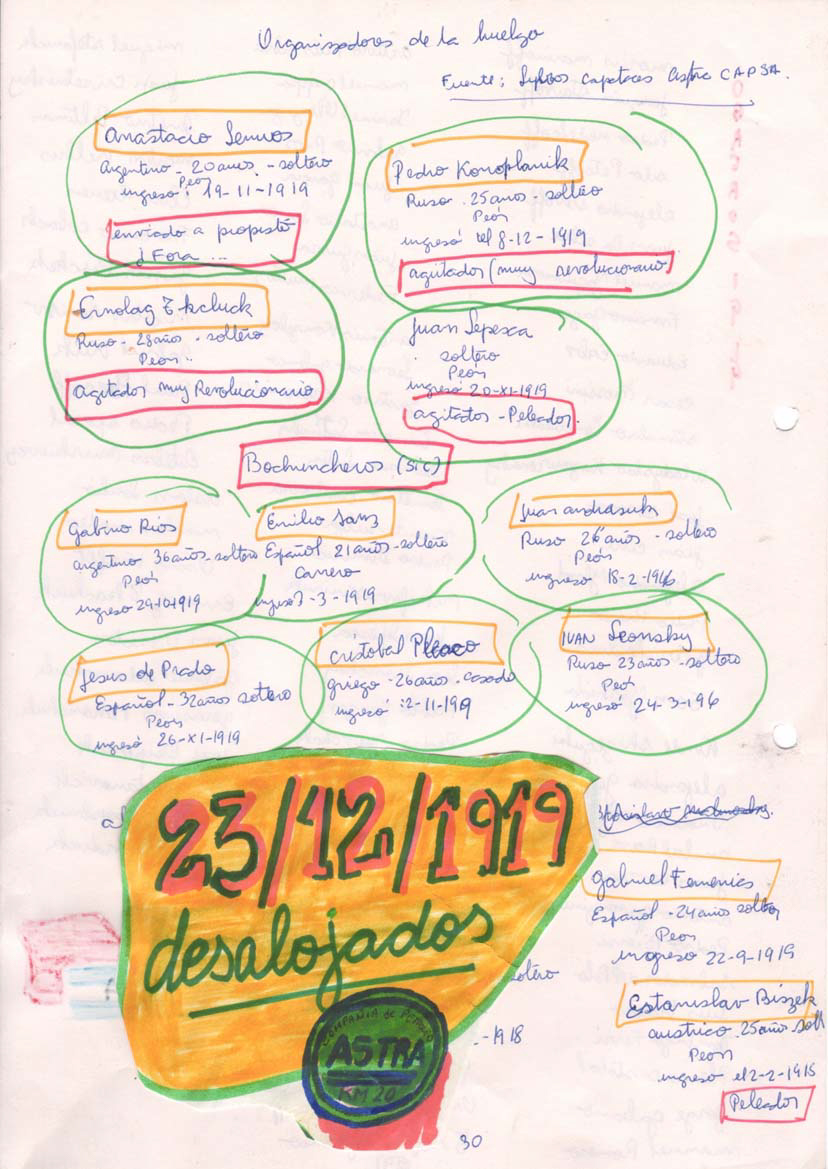 Organizadores de la huelga
Fuente: capataces Astra CAPSA.
Anastacio
Argentino - 20 anos. - soltero
Peon
ingreso: 19-11-1919
enviado a
d Fora ...
Pedro Konoplanik
Ruso. 25 anos - soltero
Peón
ingresó el 8-12-1919
agitador (muy revolucionario
Ruso - 28 años - soltero
Peón..
Agitador muy Revolucionario
Juan
soltero
Peón
ingresó 20-XI-1919
- Peleador.
Bochincheros (sic)
Gabino Rios
argentino 36 años - soltero
Peón
ingreso 29-10-1919
Emilio Sanz
Español 21 años - soltero
Carrero
ingresó 3-3-1919
Juan andrasuk
Ruso 26 años - soltero
Peón
ingreso 18-2-1916
Jesus de Prado
Español - 32 años soltero
Peón
ingresó 26-XI-1919
cristobal
griego - 26 años - casado
ingresó: 2-11-1919
IVAN Leonsky
Ruso 23 años - soltero
Peón
ingresó 24-3-196
23/12/1919
desalojados
COMPAÑIA de PETROLEO
ASTRA
KM 20
-1918
Gabriel Femenias
Español - 24 años soltero
Peon
ingreso 22-9-1919
Estanislav Biszek
austrico. 25 años - solt
Peon
ingreso el 2-2-1915
Peleador
30